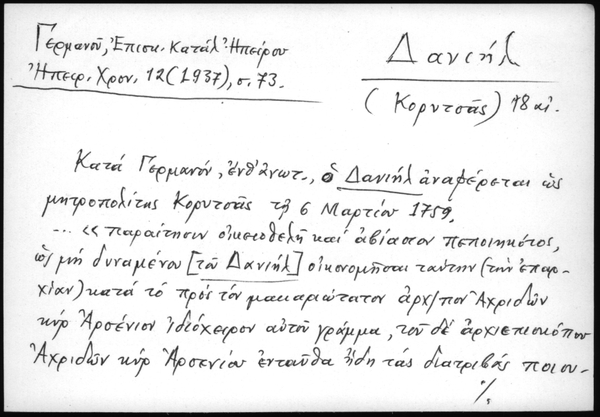 Γερμανοῦ, Ἐπισκ. Κατάλ. Ἠπείρου
Ἠπειρ. Χρον. 12 (1937), σ. 73.
Δανιήλ
(Κορυτσᾶς) 18 αἰ.
Κατά Γερμανόν, ἔνθ' ἀνωτ., ὁ Δανιήλ ἀναφέρεται ὡς
μητροπολίτης Κορυτσᾶς τῇ 6 Μαρτίου 1759.
... « παραίτησιν οἰκειοθελῆ καί ἀβίαστον πεποιηκότος,
ὡς μή δυναμένου [τοῦ Δανιήλ] οἰκονομῆσαι ταύτην (τήν ἐπαρ-
χίαν) κατά τό πρός τόν μακαριώτατον ἀρχ/πον Ἀχριδῶν
κύρ Ἀρσένιον ἰδιόχειρον αὐτοῦ γράμμα, τοῦ δέ ἀρχιεπισκόπου
Ἀχριδῶν κύρ Ἀρσενίου ἐνταῦθα ἤδη τάς διατριβάς ποιου-
./.